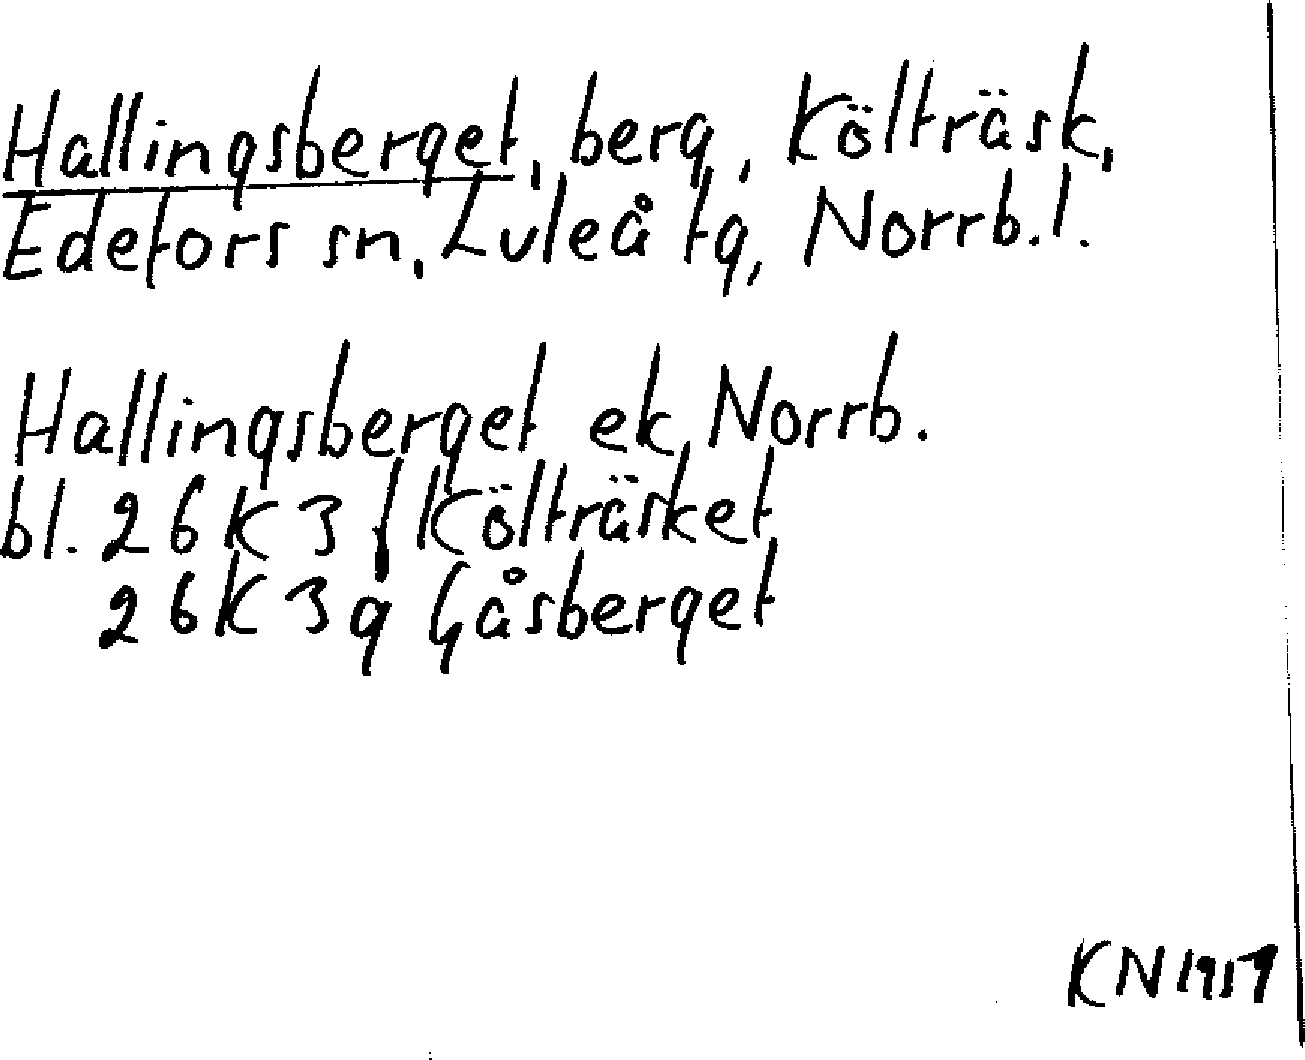 Hallingsberget, berg, Költräsk,
Edefors sn, Luleå tg, Norrb.l.
Hallingsberget ek, Norrb.
bl. 26K 3 f Költräsket
26K 3g Gåsberget
KN